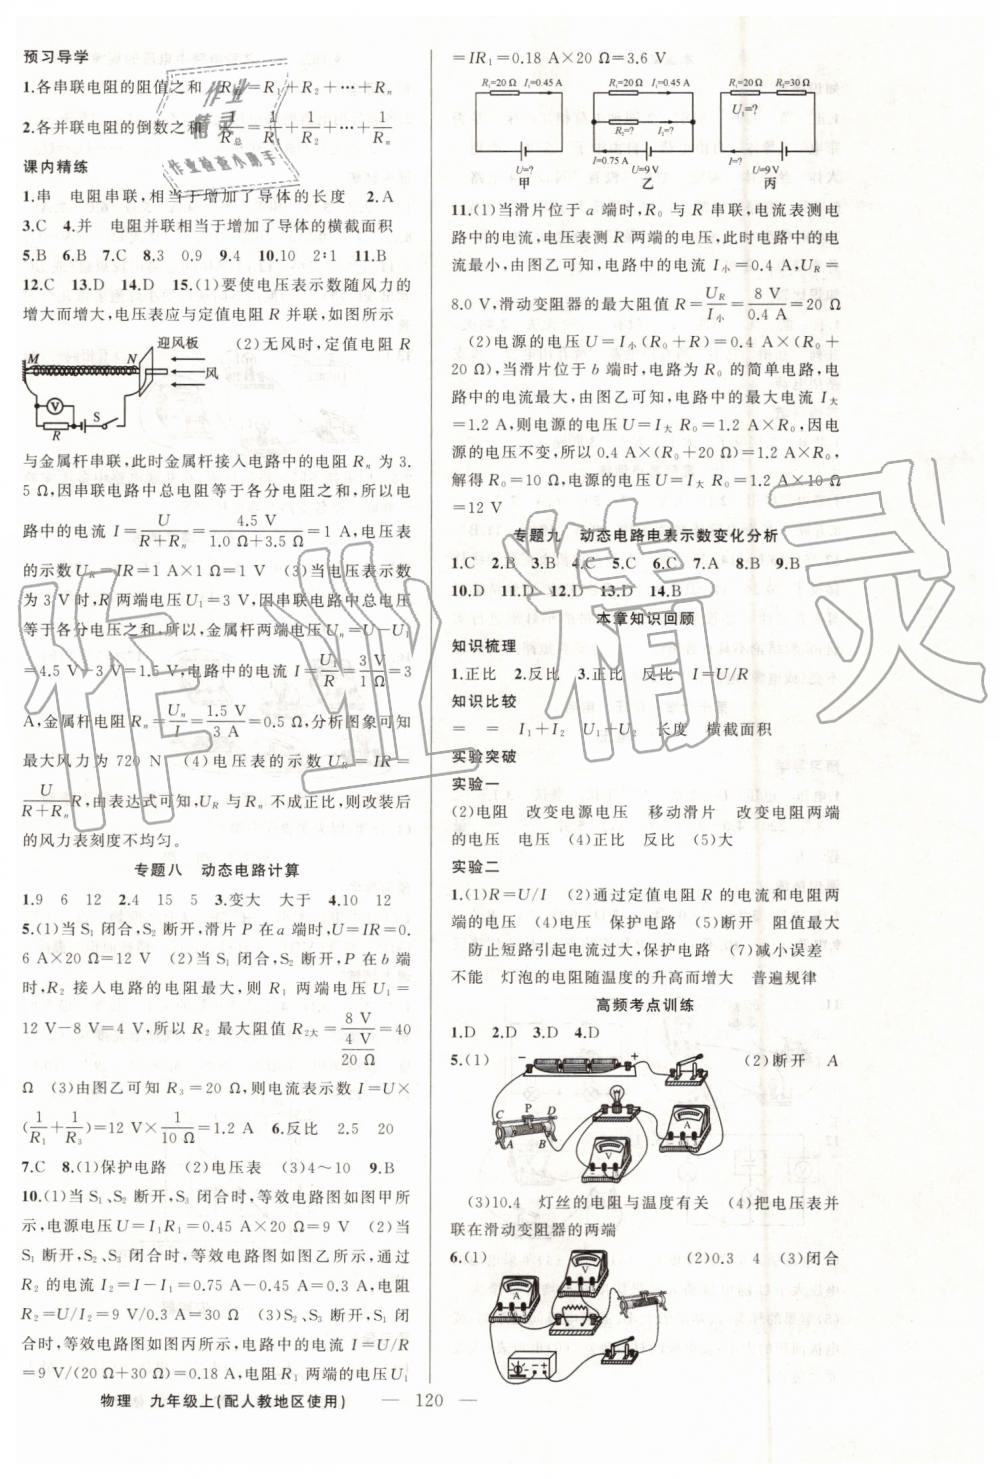 预习导学
1.各串联电阻的阻值之和 R总=R₁+R₂+…+Rₙ
2.各并联电阻的倒数之和 1/R总=1/R₁+1/R₂+…+1/Rₙ
课内精练
1.串 电阻串联,相当于增加了导体的长度 2.A
3.C 4.并 电阻并联相当于增加了导体的横截面积
5.B 6.B 7.C 8.3 0.9 9.4 10.10 2:1 11.B
12.C 13.D 14.D 15.(1)要使电压表示数随风力的
增大而增大,电压表应与定值电阻 R 并联,如图所示
迎风板 (2)无风时,定值电阻 R
M N
风
V S
R
与金属杆串联,此时金属杆接入电路中的电阻 Rₙ 为 3.
5 Ω,因串联电路中总电阻等于各分电阻之和,所以电
路中的电流 I=U/(R+Rₙ)=4.5 V/(1.0 Ω+3.5 Ω)=1 A,电压表
的示数 U_R=IR=1 A×1 Ω=1 V (3)当电压表示数
为 3 V时,R 两端电压U₁=3 V,因串联电路中总电压
等于各分电压之和,所以,金属杆两端电压 Uₙ=U-U₁
=4.5 V-3 V=1.5 V,电路中的电流 I=U₁/R=3 V/1 Ω=3
A,金属杆电阻 Rₙ=Uₙ/I=1.5 V/3 A=0.5 Ω,分析图象可知
最大风力为 720 N (4)电压表的示数 U_R=IR=
U/(R+Rₙ)R,由表达式可知,U_R 与 Rₙ 不成正比,则改装后
的风力表刻度不均匀。
专题八 动态电路计算
1.9 6 12 2.4 15 5 3.变大 大于 4.10 12
5.(1)当 S₁ 闭合,S₂ 断开,滑片 P 在a 端时,U=IR=0.
6 A×20 Ω=12 V (2)当 S₁ 闭合,S₂ 断开,P 在 b 端
时,R₂ 接入电路的电阻最大,则 R₁ 两端电压 U₁=
12 V-8 V=4 V,所以 R₂ 最大阻值 R₂大=8 V/(4 V/20 Ω)=40
Ω (3)由图乙可知 R₃=20 Ω,则电流表示数 I=U×
(1/R₁+1/R₃)=12 V×1/10 Ω=1.2 A 6.反比 2.5 20
7.C 8.(1)保护电路 (2)电压表 (3)4~10 9.B
10.(1)当 S₁、S₂ 断开,S₃ 闭合时,等效电路图如图甲所
示,电源电压U=I₁R₁=0.45 A×20 Ω=9 V (2)当
S₁ 断开,S₂、S₃ 闭合时,等效电路图如图乙所示,通过
R₂ 的电流 I₂=I-I₁=0.75 A-0.45 A=0.3 A,电阻
R₂=U/I₂=9 V/0.3 A=30 Ω (3)S₂、S₃ 断开,S₁ 闭
合时,等效电路图如图丙所示,电路中的电流 I=U/R
=9 V/(20 Ω+30 Ω)=0.18 A,电阻 R₁ 两端的电压 U₁
=IR₁=0.18 A×20 Ω=3.6 V
R₁=20 Ω I₁=0.45 A R₁=20 Ω I₁=0.45 A R₁=20 Ω R₂=30 Ω
R₂=? I₂=? U₁=?
I=0.75 A I=?
U=? U=9 V U=9 V
甲 乙 丙
11.(1)当滑片位于 a 端时,R₀ 与 R 串联,电流表测电
路中的电流,电压表测 R 两端的电压,此时电路中的电
流最小,由图乙可知,电路中的电流 I小=0.4 A,U_R=
8.0 V,滑动变阻器的最大阻值 R=U_R/I小=8 V/0.4 A=20 Ω
(2)电源的电压 U=I小(R₀+R)=0.4 A×(R₀+
20 Ω),当滑片位于 b 端时,电路为 R₀ 的简单电路,电
路中的电流最大,由图乙可知,电路中的最大电流 I大
=1.2 A,则电源的电压 U=I大 R₀=1.2 A×R₀,因电
源的电压不变,所以 0.4 A×(R₀+20 Ω)=1.2 A×R₀,
解得 R₀=10 Ω,电源的电压 U=I大 R₀=1.2 A×10 Ω
=12 V
专题九 动态电路电表示数变化分析
1.C 2.B 3.B 4.C 5.C 6.C 7.A 8.B 9.B
10.D 11.D 12.D 13.D 14.B
本章知识回顾
知识梳理
1.正比 2.反比 3.正比 反比 I=U/R
知识比较
= = I₁+I₂ U₁+U₂ 长度 横截面积
实验突破
实验一
(2)电阻 改变电源电压 移动滑片 改变电阻两端
的电压 电压 (4)正比 反比 (5)大
实验二
1.(1)R=U/I (2)通过定值电阻 R 的电流和电阻两
端的电压 (4)电压 保护电路 (5)断开 阻值最大
防止短路引起电流过大,保护电路 (7)减小误差
不能 灯泡的电阻随温度的升高而增大 普遍规律
高频考点训练
1.D 2.D 3.D 4.D
5.(1) (2)断开 A
− +
C P D
A B
A
V
(3)10.4 灯丝的电阻与温度有关 (4)把电压表并
联在滑动变阻器的两端
6.(1) (2)0.3 4 (3)闭合
V
A
物理 九年级上(配人教地区使用) — 120 —
作业
精灵
作业检查小助手
作业精灵